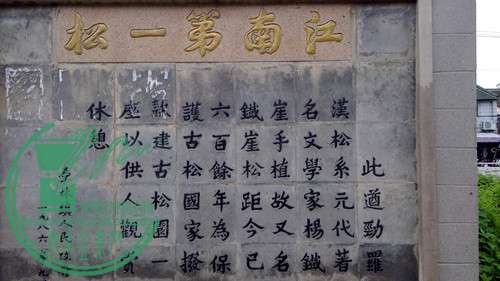 江南第一松
此遒勁羅
漢松系元代著
名文學家楊鐵
崖手植故又名
鐵崖松距今已
六百餘年為保
護古松國家撥
款建古松園一
座以供人觀賞
休憩
人民政
一九八六